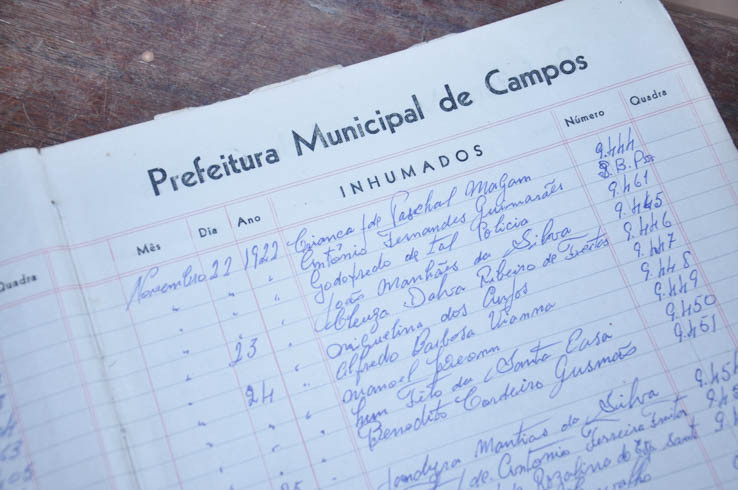 Prefeitura Municipal de Campos
INHUMADOS
Mês Dia Ano Número Quadra
Quadra
Novembro 22 1922 Criança de Paschal Magam 9.444
" " " Antônio Fernandes Guimarães S.B.P.
" " " Godofredo de tal Policia 9.461
" " " João Manhães da Silva 9.445
" " " Cleuza Dalva Ribeiro de Freitas 9.446
" 23 " dos Anjos 9.447
" " " Alfredo Barbosa Vianna 9.448
" 24 " Manoel 9.449
" " " Um Feto da Santa Casa 9.450
" " " Benedito Cordeiro Gusmão 9.451
Jandyra Manhães da Silva
de Antonio Ferreira